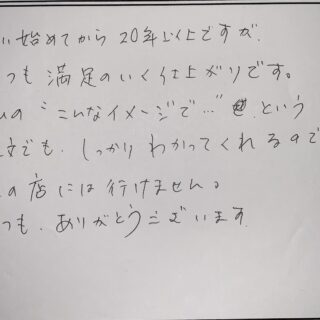 い始めてから 20年以上ですが、
つも 満足のいく仕上がりです。
の “こんなイメージで…” という
文でも、しっかり わかってくれるので
の店には行けません。
つも、ありがとうございます